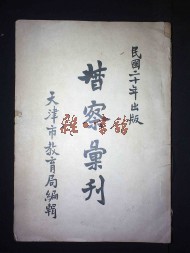 民國二十年出版
督察彙刊
天津市教育局編輯